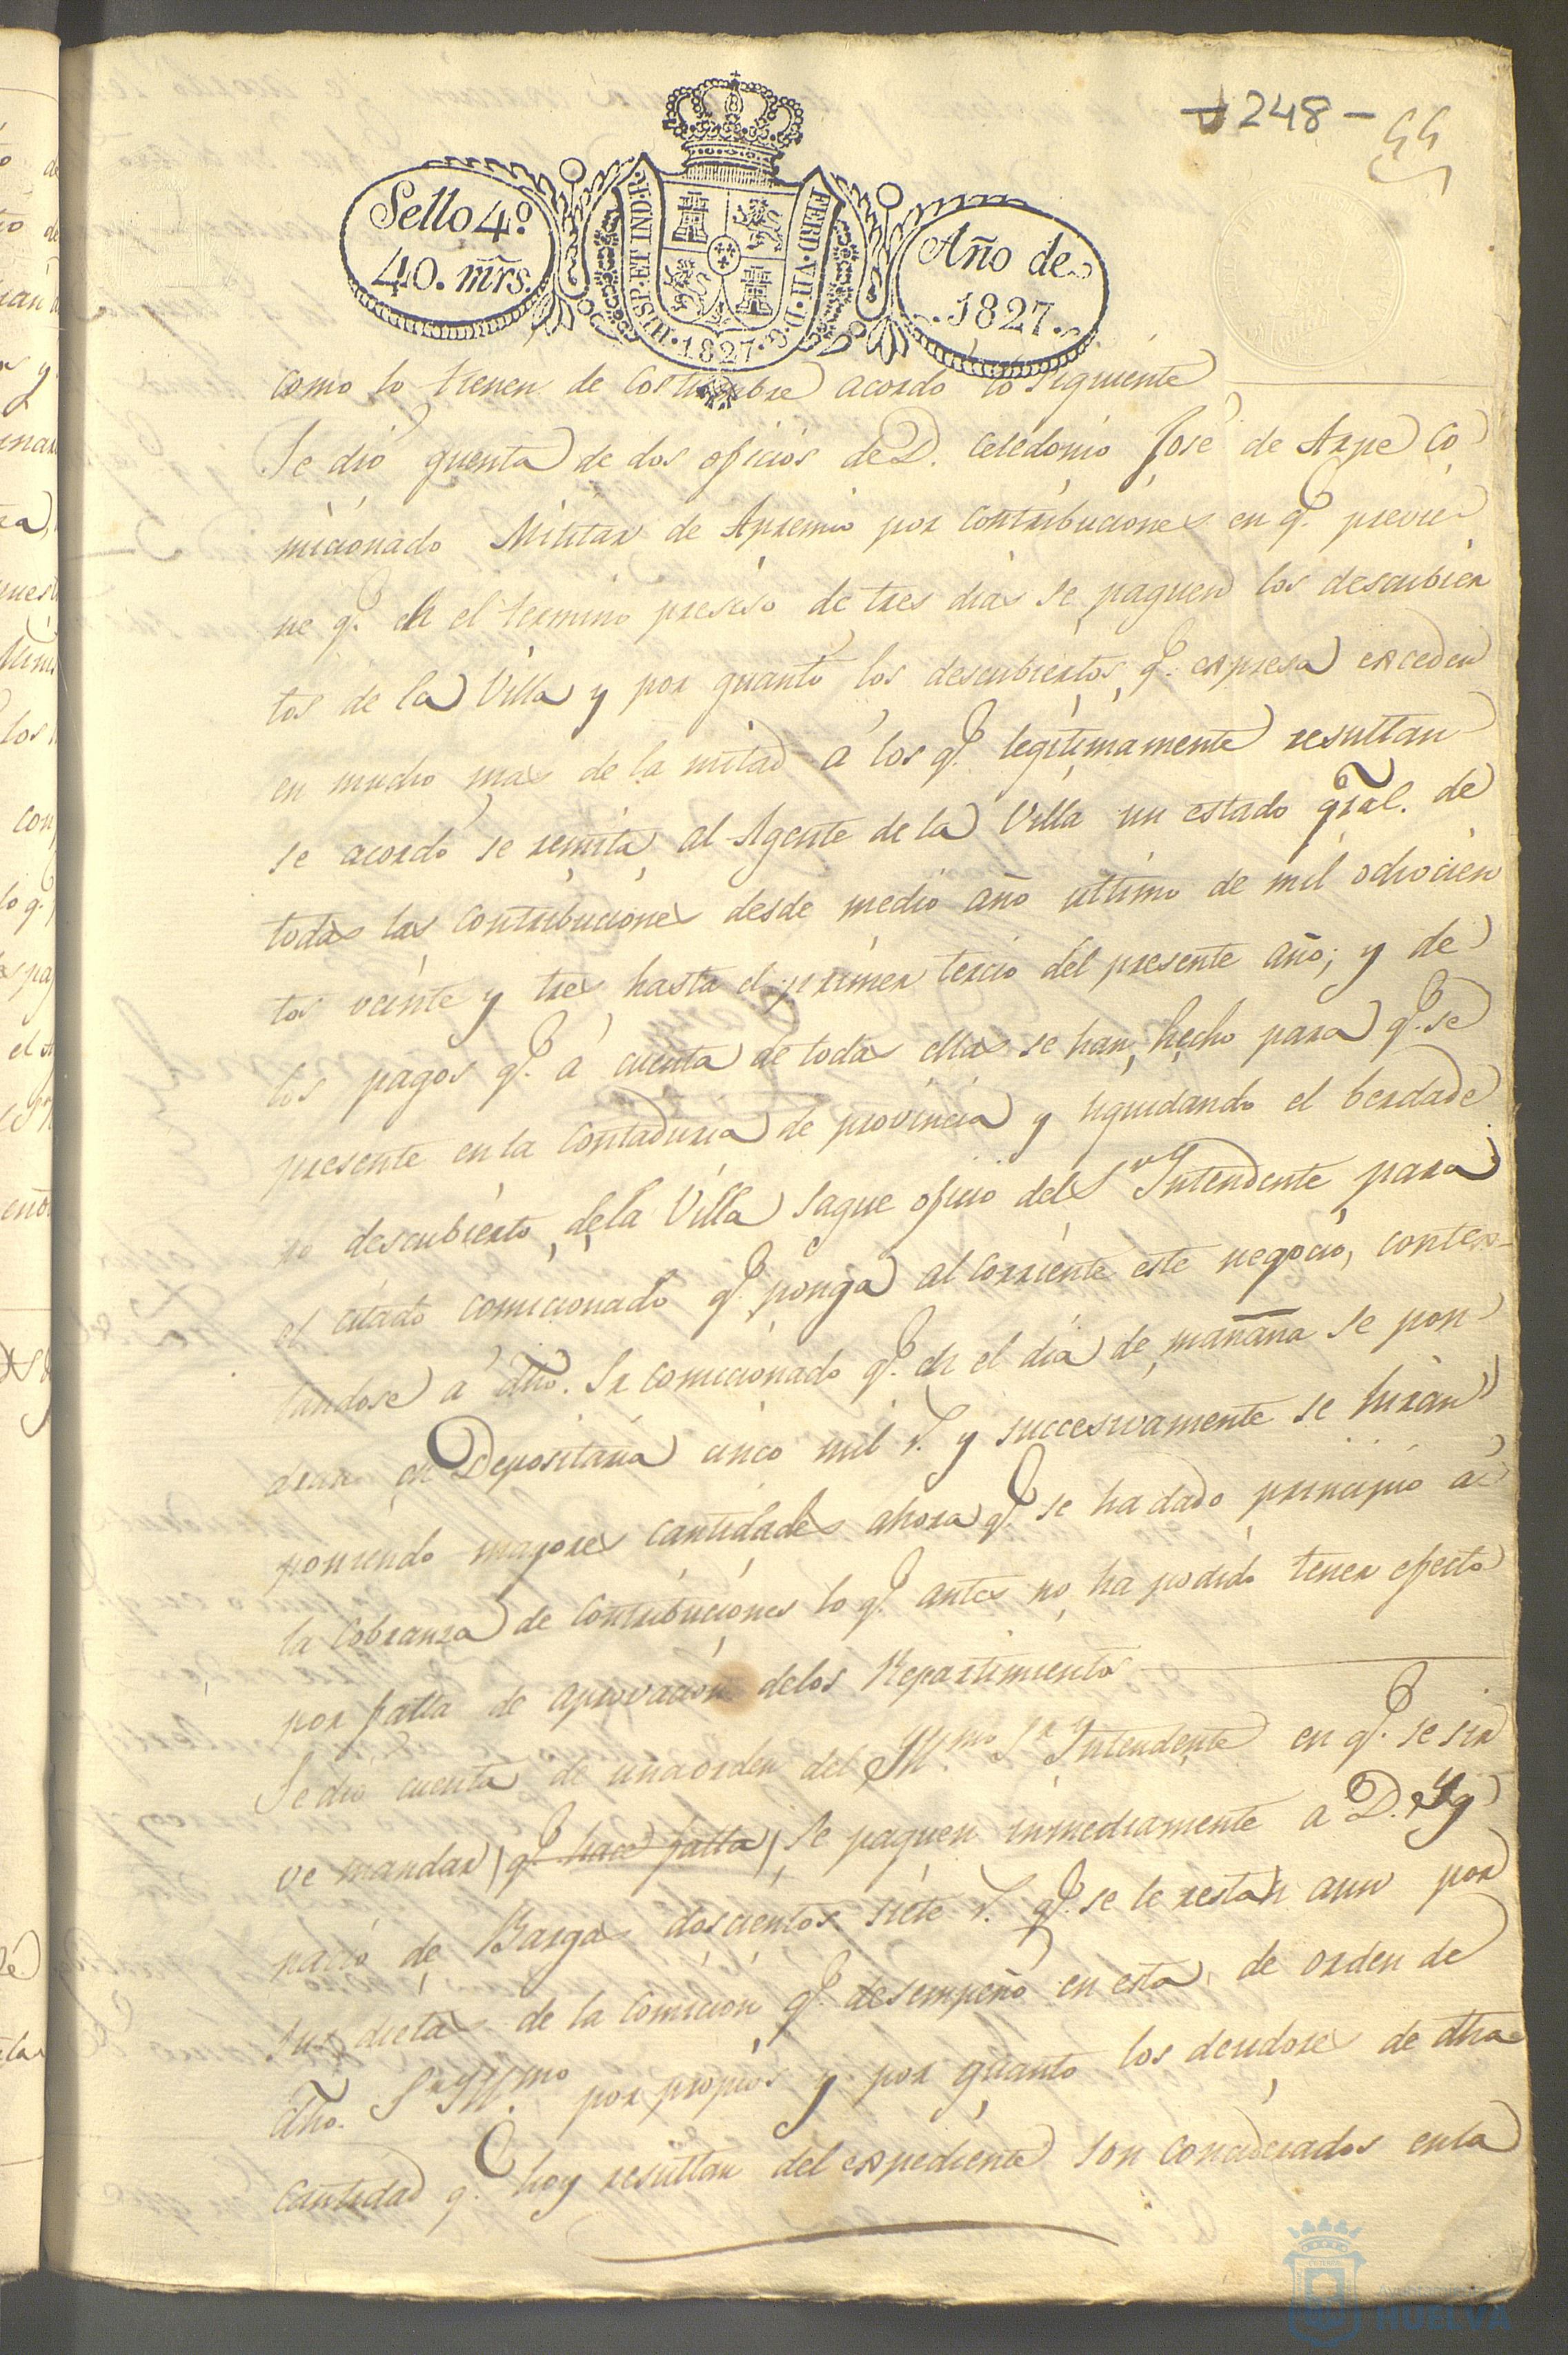 248 - 55
Sello 4.º
40. mrs.
HISP. ET IND. R.
FERD. VII. D. G.
.1827.
Año de
.1827.
como lo tienen de Costumbre acordó lo siguiente
Se dio quenta de dos oficios de D. Celedonio José de Arpe Co
micionado Militar de Apremio por contribuciones en q.e previe
ne q.e en el termino preciso de tres dias se paguen los descubier
tos de la Villa y por quanto los descubiertos q.e expresa exceden
en mucho mas de la mitad á los q.e legitimamente resultan
se acordó se remita al Agente de la Villa un estado gral. de
todas las contribuciones desde medio año ultimo de mil ochocien
tos veinte y tres hasta el primer tercio del presente año; y de
los pagos q.e á cuenta de todas ellas se han hecho para q.e se
presente en la Contaduria de provincia y liquidando el berdade
ro descubierto de la Villa saque oficio del Sor Intendente para
el citado comicionado q.e ponga al Corriente este negocio, contes-
tandose á dho. Sr comicionado q.e en el dia de mañana se pon
dran en Depositaria cinco mil r.s y succesivamente se hirán
poniendo mayores cantidades ahora q.e se ha dado principio á
la Cobranza de Contribuciones lo q.e antes no ha podido tener efecto
por falta de aprovacion de los Repartimientos
Se dio cuenta de una orden del Yll.mo Sr Yntendente en q.e se sir
ve mandar (q.e hace falta) se paguen inmediamente a D. Yg
nacio de Bargas doscientos siete r.s q.e se le restan aun por
sus dietas de la Comicion q.e desempeñó en esta de orden de
dho. Sr Yll.mo por propios y por quanto los deudores de dha
Cantidad q.e hoy resultan del expediente son conciderados en la
AYUNTAMIENTO DE
HUELVA